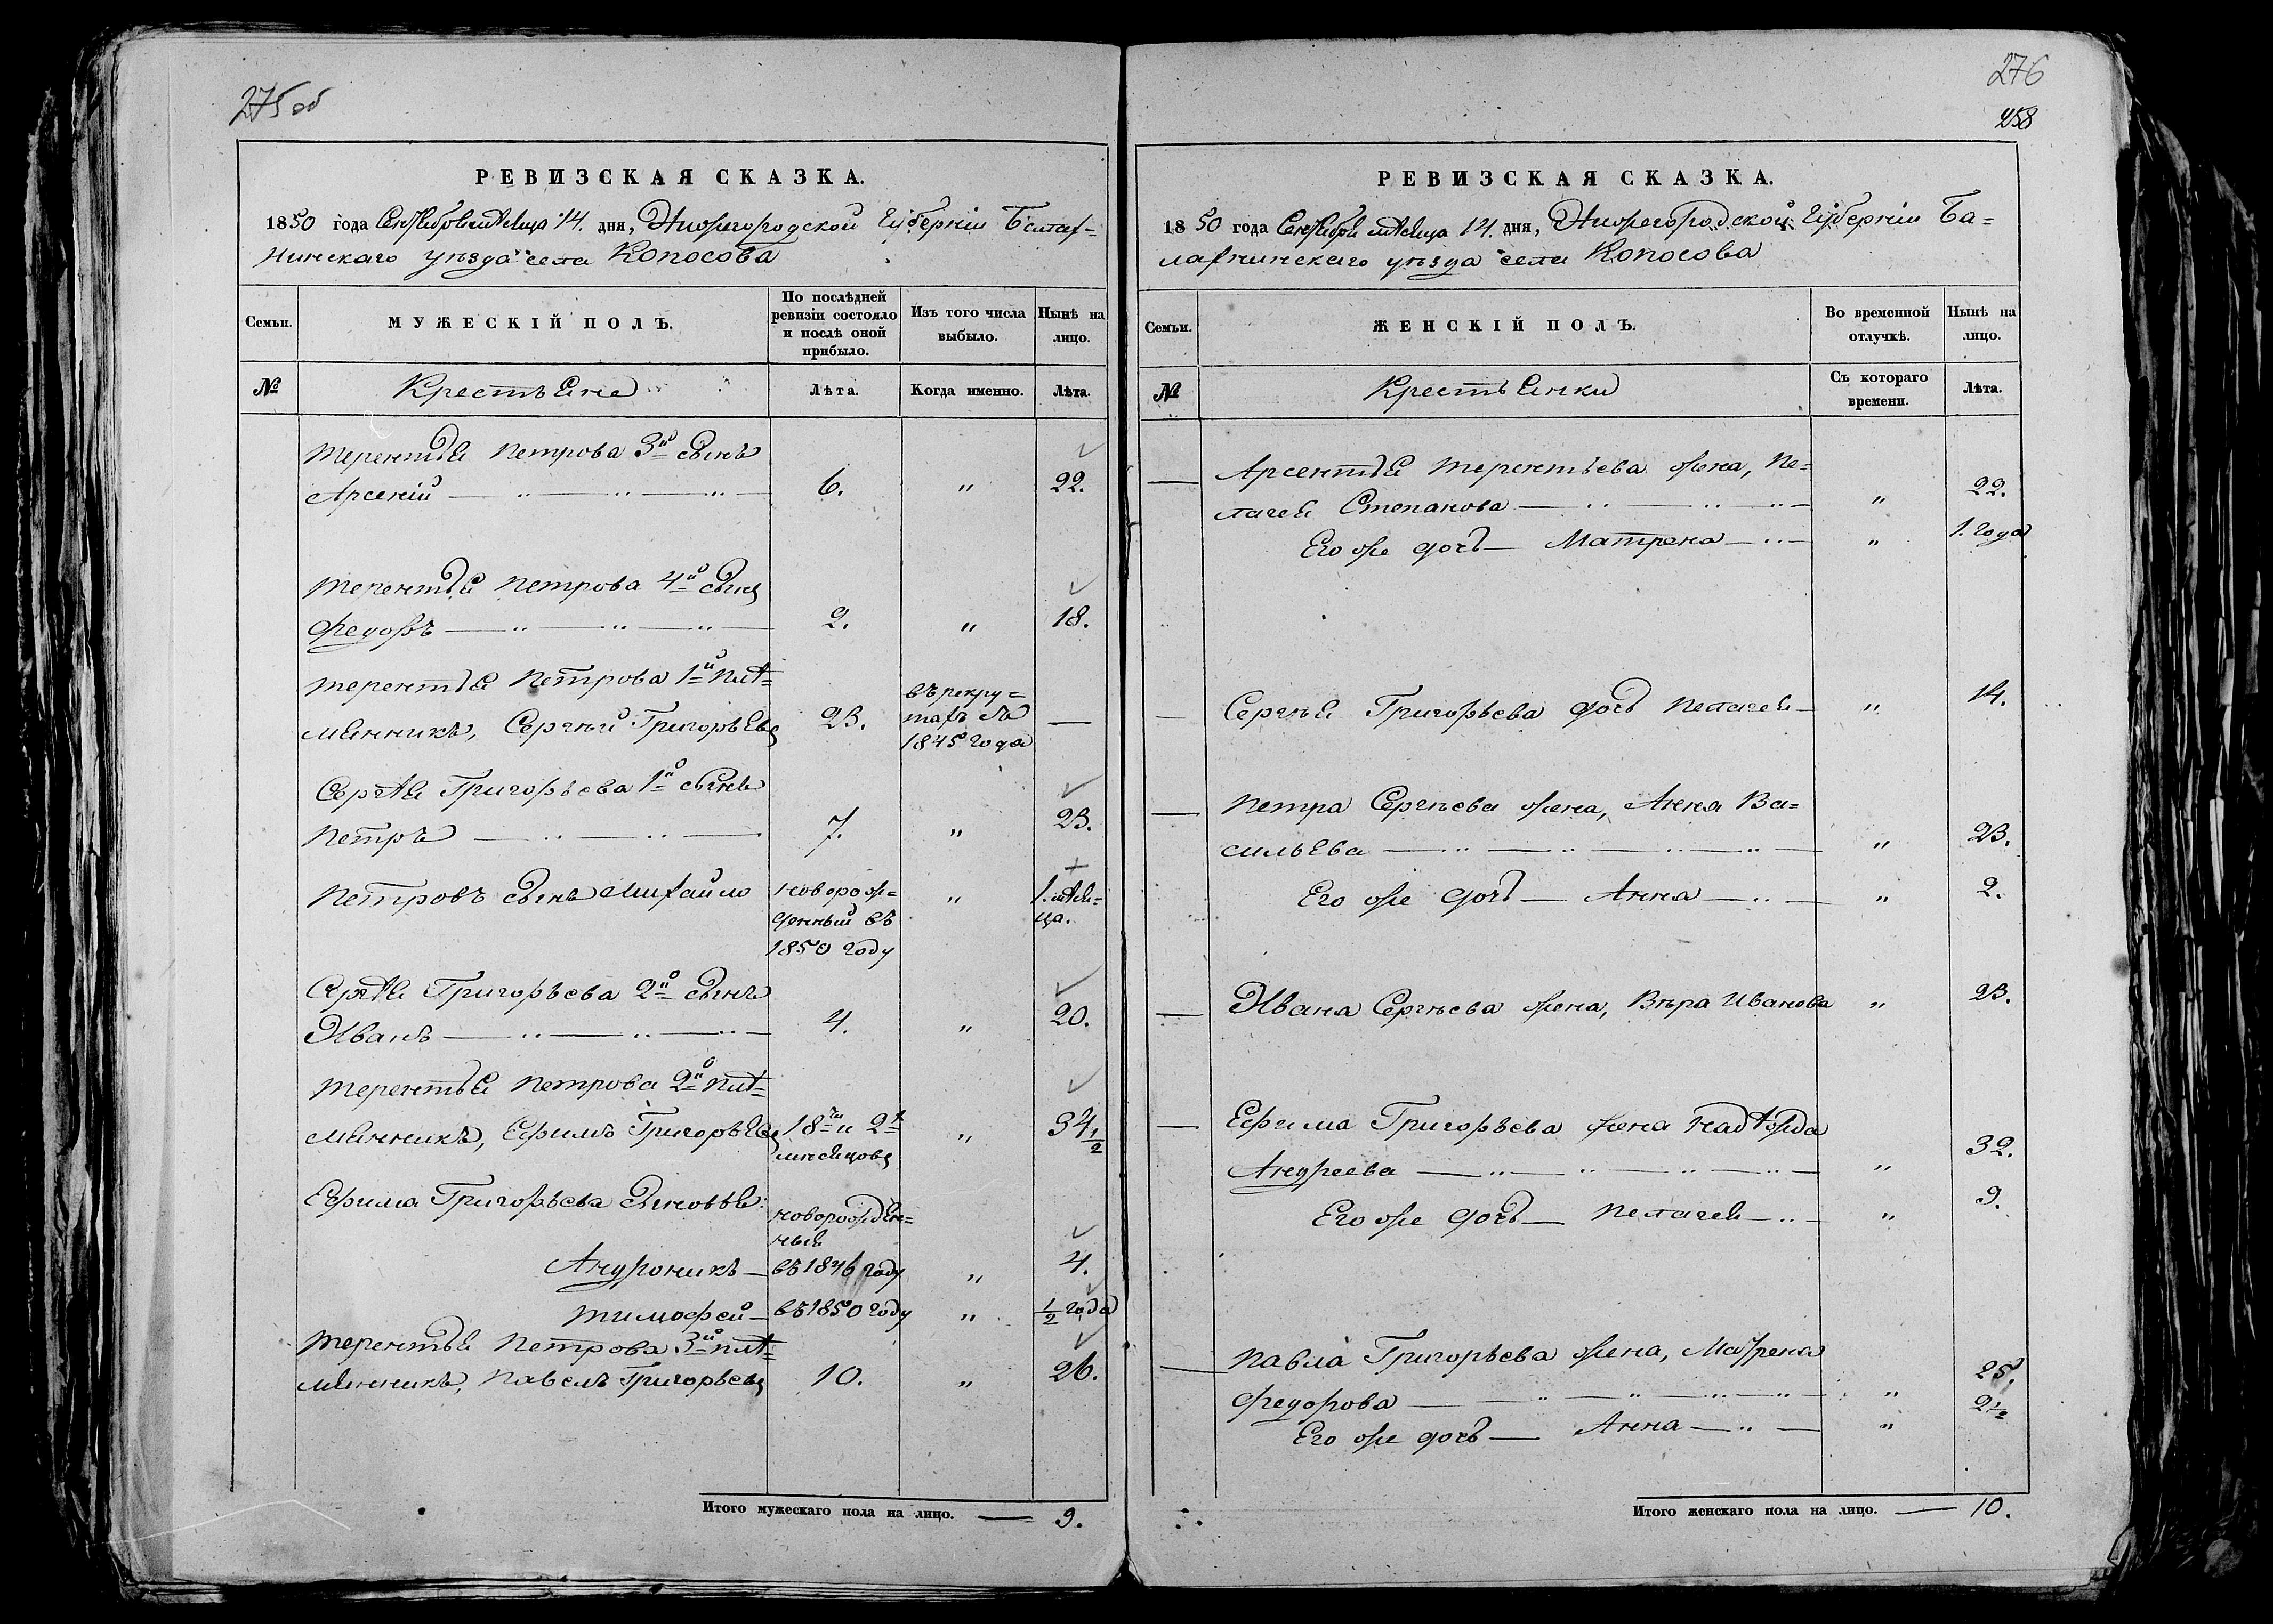 275 об
РЕВИЗСКАЯ СКАЗКА.
1850 года Сентября мѣсяца 14. дня, Нижегородской Губерніи Балах=
нинскаго уѣзда села Копосова
Семьи.
МУЖЕСКІЙ ПОЛЪ.
По послѣдней
ревизіи состояло
и послѣ оной
прибыло.
Изъ того числа
выбыло.
Нынѣ на
лицо.
№
Крестьяне
Лѣта.
Когда именно.
Лѣта.
Терентья Петрова 3й сынъ
Арсеній 6. " 22.
Терентья Петрова 4й сынъ
Федоръ 2. " 18.
Терентья Петрова 1й пле=
мянникъ, Сергѣй Григорьевъ 23. въ рекру=
тахъ съ
1845 года —
Сергѣя Григорьева 1й сынъ
Петръ 7. " 23.
Петровъ сынъ Михайло новорож=
денный въ
1850 году " 1. мѣся=
ца.
Сергѣя Григорьева 2й сынъ
Иванъ 4. " 20.
Терентья Петрова 2й пле=
мянникъ, Ефимъ Григорьевъ 18ти и 2х
мѣсяцовъ " 34 1/2
Ефима Григорьева сыновья: новорожден=
ный
Андроникъ — въ 1846 году " 4.
Тимофей — въ 1850 году " 1/2 года
Терентья Петрова 3й пле=
мянникъ, Павелъ Григорьевъ 10. " 26.
Итого мужескаго пола на лицо. — 9.
276
258
РЕВИЗСКАЯ СКАЗКА.
1850 года Сентября мѣсяца 14. дня, Нижегородской Губерніи Ба=
лахнинскаго уѣзда села Копосова
Семьи.
ЖЕНСКІЙ ПОЛЪ.
Во временной
отлучкѣ.
Нынѣ на
лицо.
№
Крестьянки
Съ котораго
времени.
Лѣта.
Арсентья Терентьева жена, Пе=
лагея Степанова " 22.
Его же дочь — Матрена " 1. года
Сергѣя Григорьева дочь Пелагея — " 14.
Петра Сергѣева жена, Анна Ва=
сильева " 23.
Его же дочь — Анна " 2.
Ивана Сергѣева жена, Вѣра Иванова " 23.
Ефима Григорьева жена Надѣжда
Андреева " 32.
Его же дочь — Пелагея " 9.
Павла Григорьева жена, Матрена
Федорова " 25.
Его же дочь — Анна " 2 1/2
Итого женскаго пола на лицо. — 10.